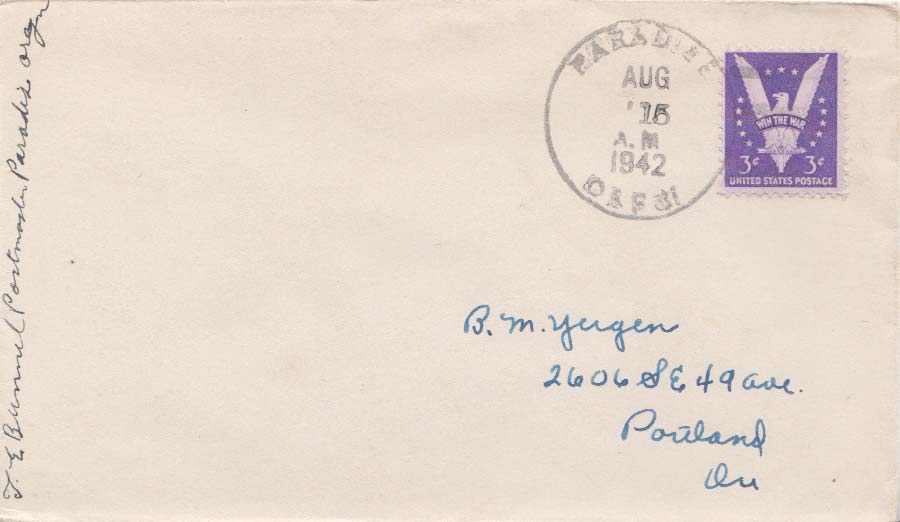 T. E Bunnel Postmaster Paradise Oregn
PARADISE
AUG
15
A.M
1942
OREG.
WIN THE WAR
3¢ 3¢
UNITED STATES POSTAGE
B. M. Yergen
2606 SE 49 ave.
Portland
Ore